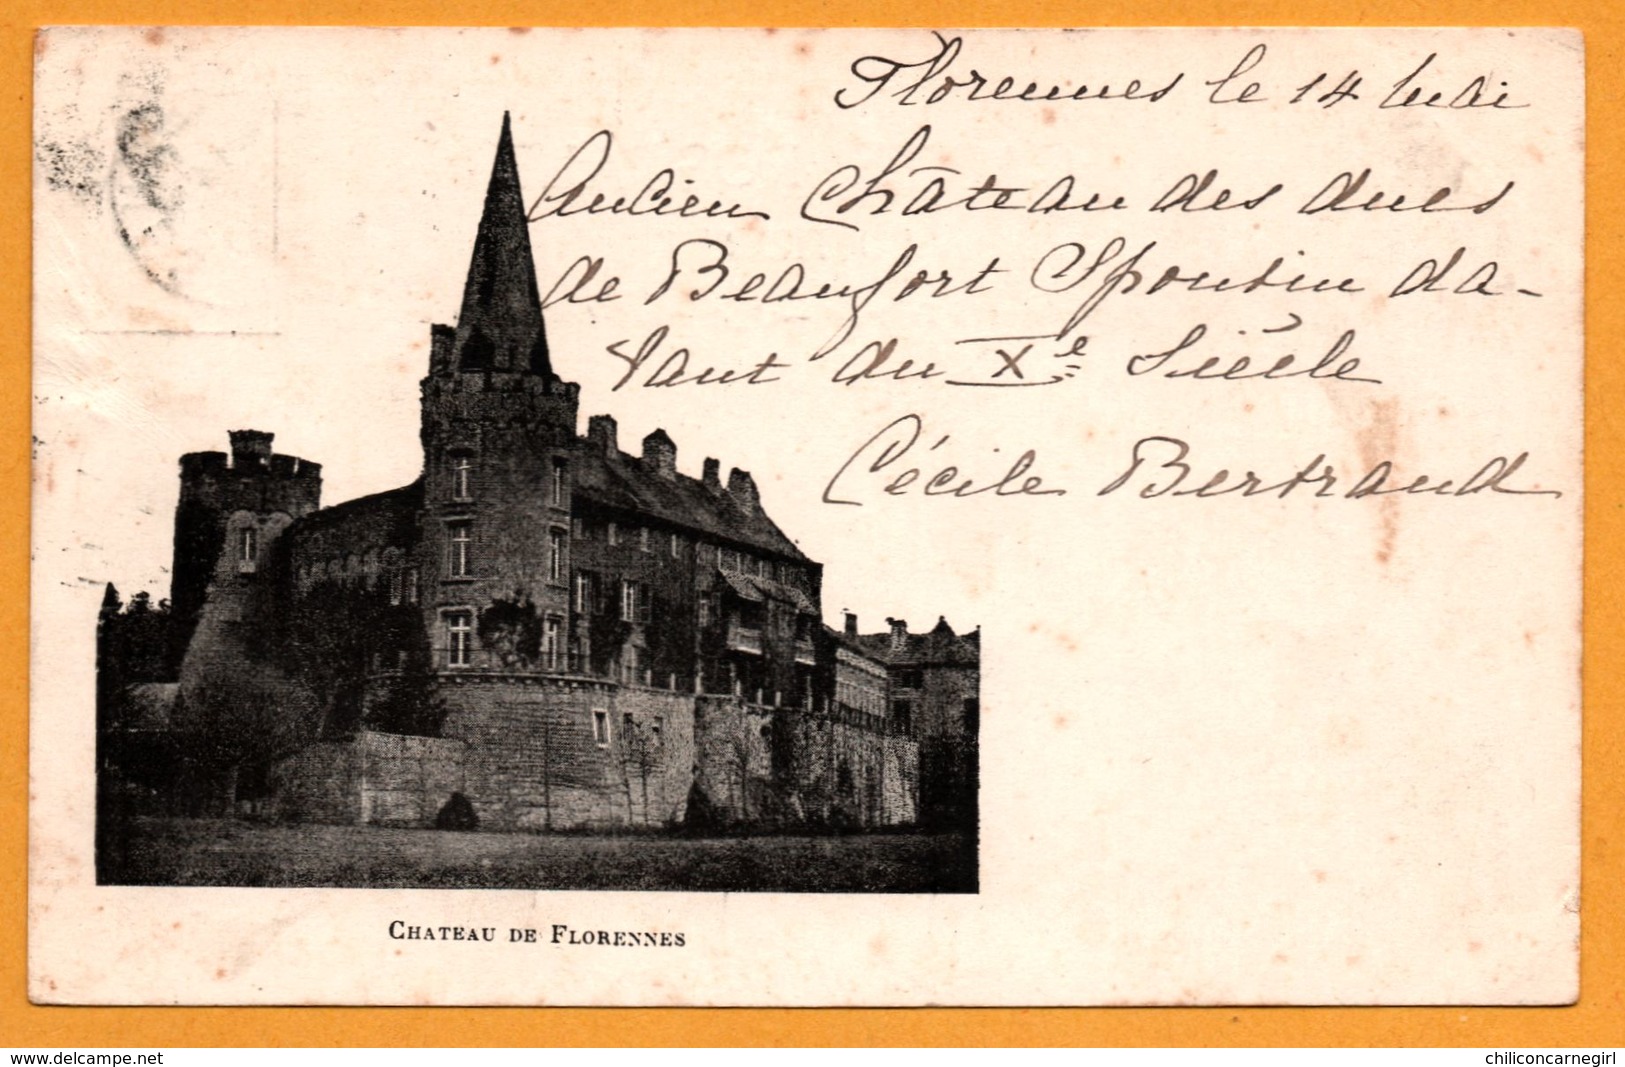 Florennes le 14 mai
Ancien Château des ducs
de Beaufort Spontin da-
tant du Xe Siècle
Cécile Bertrand
CHATEAU DE FLORENNES
www.delcampe.net
chiliconcarnegirl